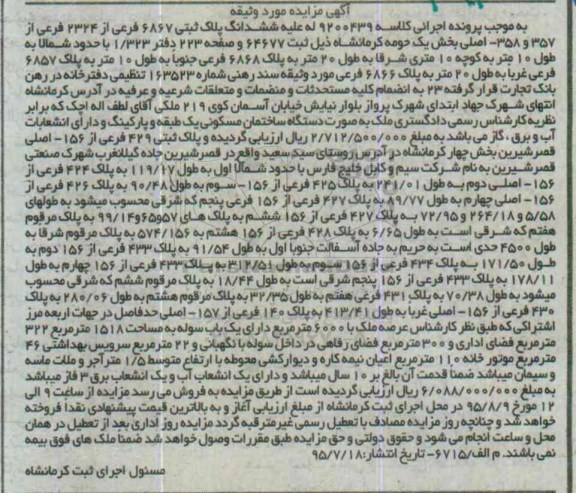 آگهی مزایده مورد وثیقه
به موجب پرونده اجرائی کلاسه ۹۲۰۰۴۳۹ له علیه ششدانگ پلاک ثبتی ۶۸۶۷ فرعی از ۲۳۲۴ فرعی از
۳۵۷ و ۳۵۸- اصلی بخش یک حومه کرمانشاه ذیل ثبت ۶۴۶۷۷ و صفحه ۲۲۳ دفتر ۱/۳۲۳ با حدود شمالا به
طول ۱۰ متر به کوچه ۱۰ متری شرقا به طول ۲۰ متر به پلاک ۶۸۶۸ فرعی جنوبا به طول ۱۰ متر به پلاک ۶۸۵۷
فرعی غربا به طول ۲۰ متر به پلاک ۶۸۶۶ فرعی مورد وثیقه سند رهنی شماره ۱۶۳۵۲۳ تنظیمی دفترخانه در رهن
بانک تجارت قرار گرفته ۲۳ به انضمام کلیه مستحدثات و منضمات و متعلقات شرعیه و عرفیه در آدرس کرمانشاه
انتهای شهرک جهاد ابتدای شهرک پرواز بلوار نیایش خیابان آسمان کوی ۲۱۹ ملکی آقای لطف اله اچک که برابر
نظریه کارشناس رسمی دادگستری ملک به صورت دستگاه ساختمان مسکونی یک طبقه و پارکینگ و دارای انشعابات
آب و برق ، گاز می باشد به مبلغ ۲/۷۱۲/۵۰۰/۰۰۰ ریال ارزیابی گردیده و پلاک ثبتی ۴۲۹ فرعی از ۱۵۶- اصلی
قصرشیرین بخش چهار کرمانشاه در آدرس روستای سید سعید واقع در قصرشیرین جاده گیلانغرب شهرک صنعتی
قصرشیرین به نام شرکت سیم و کابل خلیج فارس با حدود شمالا اول به طول ۱۱۹/۱۷ به پلاک ۴۲۴ فرعی از
۱۵۶- اصلی دوم به طول ۲۴۱/۰۱ به پلاک ۴۲۵ فرعی از ۱۵۶- سوم به طول ۹۰/۴۸ به پلاک ۴۲۶ فرعی از
۱۵۶- اصلی چهارم به طول ۸۹/۷۷ به پلاک ۴۲۷ فرعی از ۱۵۶ فرعی پنجم که شرقی محسوب میشود به طولهای
۵/۵۸ و ۲۶۴/۱۸ و ۷۲/۹۵ به پلاک ۴۲۷ فرعی از ۱۵۶ ششم به پلاک های ۵۷و۶۵و۹۹/۱۴ به پلاک مرقوم
هفتم که شرقی است به طول ۶/۶۵ به پلاک ۴۲۸ فرعی از ۱۵۶ هشتم به ۵۷۴/۱۵۶ به پلاک مرقوم شرقا به
طول ۴۵۰۰ حدی است به حریم به جاده آسفالت جنوبا اول به طول ۹۱/۵۴ به پلاک ۴۳۳ فرعی از ۱۵۶ دوم به
طول ۱۷۱/۵۰ به پلاک ۴۳۴ فرعی از ۱۵۶ سوم به طول ۳۱۲/۵۱ به پلاک ۴۳۳ فرعی از ۱۵۶ چهارم به طول
۱۷۸/۱۱ به پلاک ۴۳۳ فرعی از ۱۵۶ پنجم شرقی است به طول ۱۸/۴۴ به پلاک مرقوم ششم که شرقی محسوب
میشود به طول ۷۰/۳۸ به پلاک ۴۳۱ فرعی هفتم به طول ۳۲/۳۵ به پلاک مرقوم هشتم به طول ۲۸۰/۰۶ به پلاک
۴۳۰ فرعی از ۱۵۶- اصلی غربا به طول ۴۱۳/۴۱ به پلاک ۱۴۰ فرعی از ۱۵۷- اصلی حدفاصل در جهات اربعه مرز
اشتراکی که طبق نظر کارشناس عرصه ملک با ۶۰۰۰۰ مترمربع دارای یک باب سوله به مساحت ۱۵۱۸ مترمربع ۳۲۲
مترمربع فضای اداری و ۳۰۰ مترمربع فضای رفاهی در داخل سوله با نگهبانی و ۲۲ مترمربع سرویس بهداشتی ۴۶
مترمربع موتور خانه ۱۱۰ مترمربع اعیان نیمه کاره و دیوارکشی محوطه با ارتفاع متوسط ۱/۵ متر آجر و ملات ماسه
و سیمان میباشد ضمنا قدمت آن بالغ بر ۱۰ سال میباشد و دارای یک انشعاب آب و یک انشعاب برق ۳ فاز میباشد
به مبلغ ۶/۰۸۸/۰۰۰/۰۰۰ ریال ارزیابی گردیده است از طریق مزایده به فروش می رسد مزایده از ساعت ۹ الی
۱۲ مورخ ۹۵/۸/۹ در محل اجرای ثبت کرمانشاه از مبلغ ارزیابی آغاز و به بالاترین قیمت پیشنهادی نقدا فروخته
خواهد شد و چنانچه روز مزایده مصادف با تعطیل رسمی غیرمترقبه گردد مزایده روز اداری بعد از تعطیل در همان
محل و ساعت انجام می شود و حقوق دولتی و حق مزایده طبق مقررات وصول خواهد شد ضمنا ملک های فوق بیمه
نمی باشند. م الف/۶۷۱۵- تاریخ انتشار:۹۵/۷/۱۸
مسئول اجرای ثبت کرمانشاه